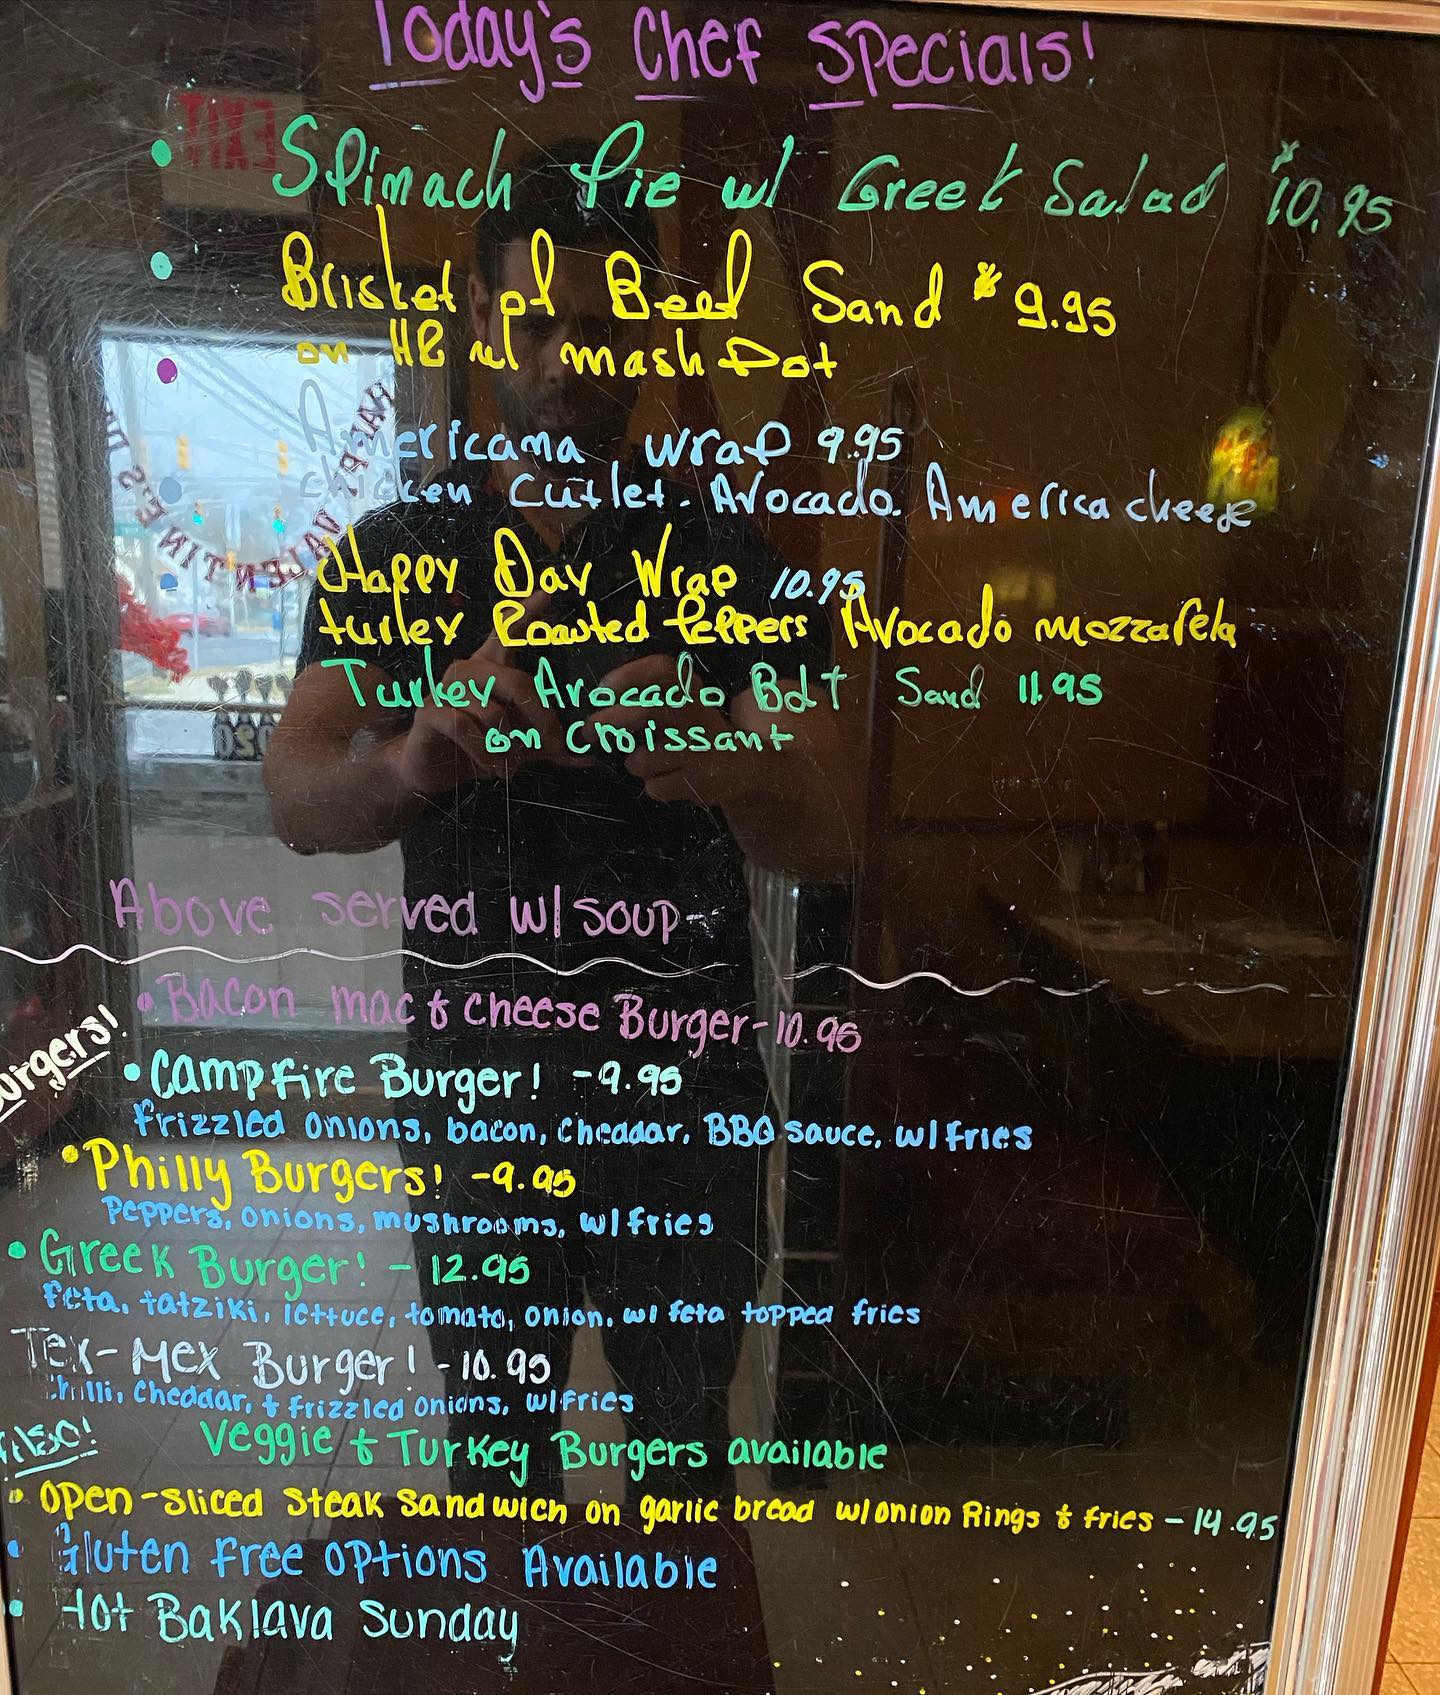 Today's Chef Specials!
EXIT
Spinach Pie w/ Greek Salad $10.95
Brisket of Beef Sand $9.95
on HR w/ mash Pot
Americana wrap 9.95
chicken Cutlet. Avocado. America cheese
Happy Day Wrap 10.95
turkey Roasted Peppers Avocado mozzarela
Turkey Avocado Bdt Sand 11.95
on croissant
Above served w/ soup
HAPPY VALENTINE'S
2020
Burgers!
Bacon mac & cheese Burger-10.95
Campfire Burger! -9.95
frizzled onions, bacon, cheddar, BBQ sauce, w/fries
Philly Burgers! -9.95
Peppers, onions, mushrooms, w/fries
Greek Burger! - 12.95
feta, tatziki, lettuce, tomato, onion, w/ feta topped fries
Tex-Mex Burger! -10.95
Chilli, cheddar, & frizzled onions, w/fries
Also!
Veggie & Turkey Burgers available
open-sliced steak sandwich on garlic bread w/onion Rings & fries - 14.95
Gluten free options Available
Hot Baklava Sunday